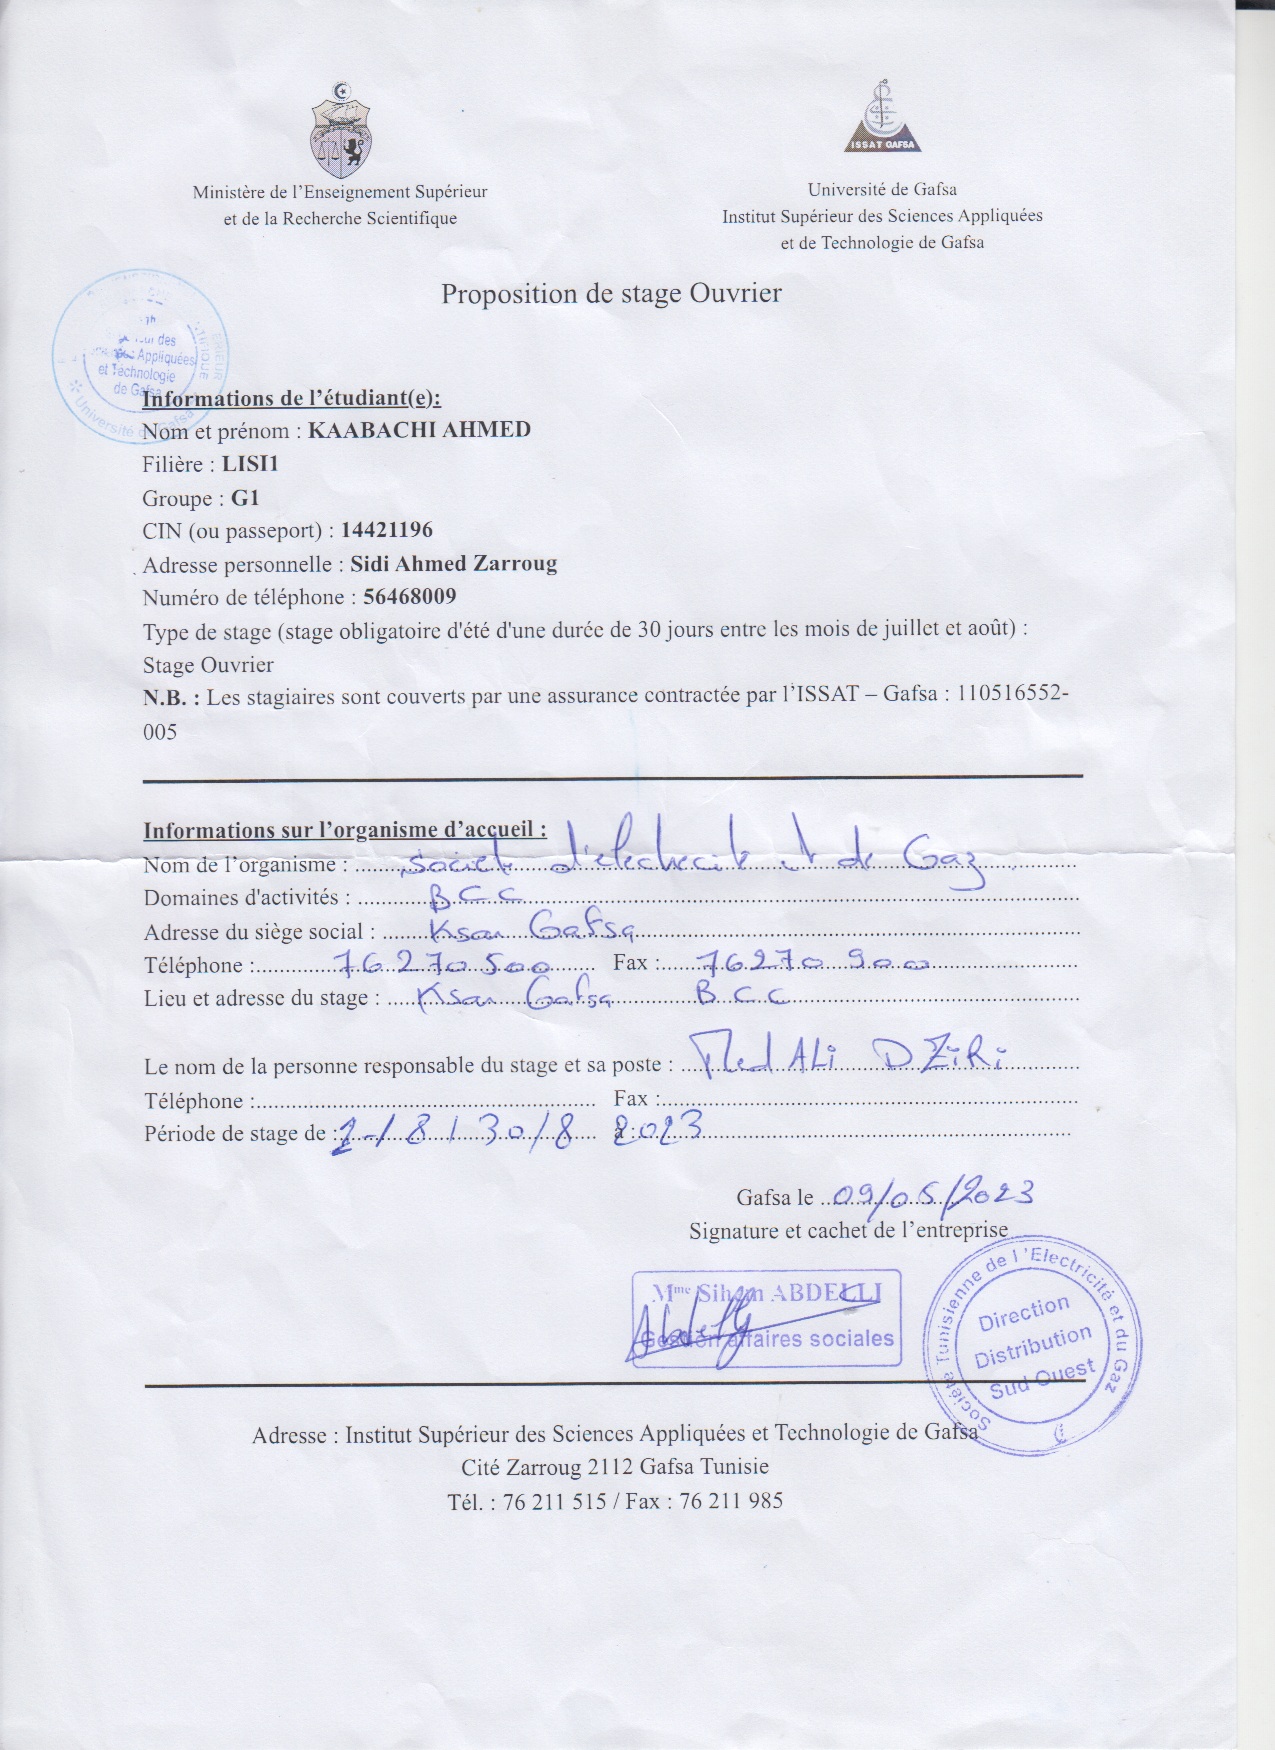 ISSAT GAFSA
Ministère de l'Enseignement Supérieur
et de la Recherche Scientifique
Université de Gafsa
Institut Supérieur des Sciences Appliquées
et de Technologie de Gafsa
Proposition de stage Ouvrier
des
Appliquées
et Technologie
de Gafsa
Université de Gafsa
Informations de l'étudiant(e):
Nom et prénom : KAABACHI AHMED
Filière : LISI1
Groupe : G1
CIN (ou passeport) : 14421196
Adresse personnelle : Sidi Ahmed Zarroug
Numéro de téléphone : 56468009
Type de stage (stage obligatoire d'été d'une durée de 30 jours entre les mois de juillet et août) :
Stage Ouvrier
N.B. : Les stagiaires sont couverts par une assurance contractée par l'ISSAT – Gafsa : 110516552-
005
Informations sur l'organisme d'accueil :
Nom de l'organisme : societe d'electrecite et de Gaz
Domaines d'activités : B C C
Adresse du siège social : Ksar Gafsa
Téléphone : 76 270 500 Fax : 76270 900
Lieu et adresse du stage : Ksar Gafsa B C C
Le nom de la personne responsable du stage et sa poste : Med ALi DZiRi
Téléphone : Fax :
Période de stage de : /8/ 30/8 à : 2023
Gafsa le 09/05/2023
Signature et cachet de l'entreprise
Mme Sihem ABDELLI
Gestion affaires sociales
Société Tunisienne de l'Electricité et du Gaz
Direction
Distribution
Sud Ouest
Adresse : Institut Supérieur des Sciences Appliquées et Technologie de Gafsa
Cité Zarroug 2112 Gafsa Tunisie
Tél. : 76 211 515 / Fax : 76 211 985